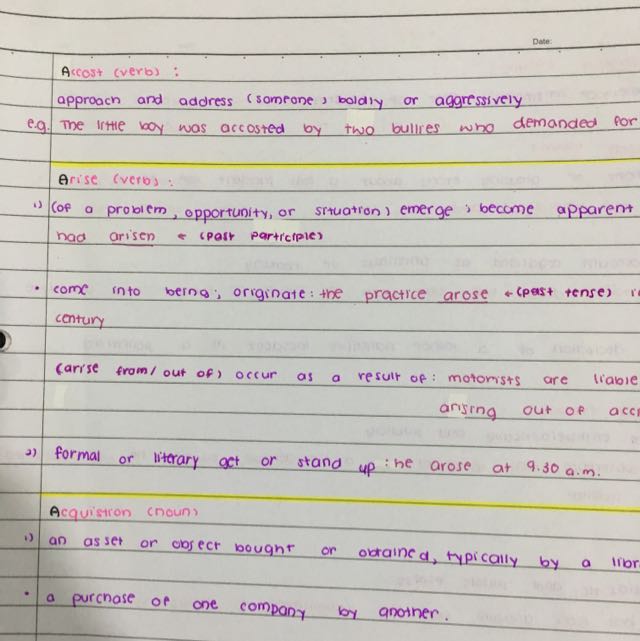 Date:
Accost (verb) :
approach and address (someone) boldly or aggressively
e.g. The little boy was accosted by two bullies who demanded for
Arise (verb) :
1) (of a problem, opportunity, or situation) emerge ; become apparent
had arisen ← (past participle)
• come into being; originate: the practice arose ← (past tense)
century
(arise from/ out of) occur as a result of: motorists are liable
arising out of acc
2) formal or literary get or stand up : he arose at 9.30 a.m.
Acquistion (noun)
1) an asset or object bought or obtained, typically by a libr
• a purchase of one company by another.